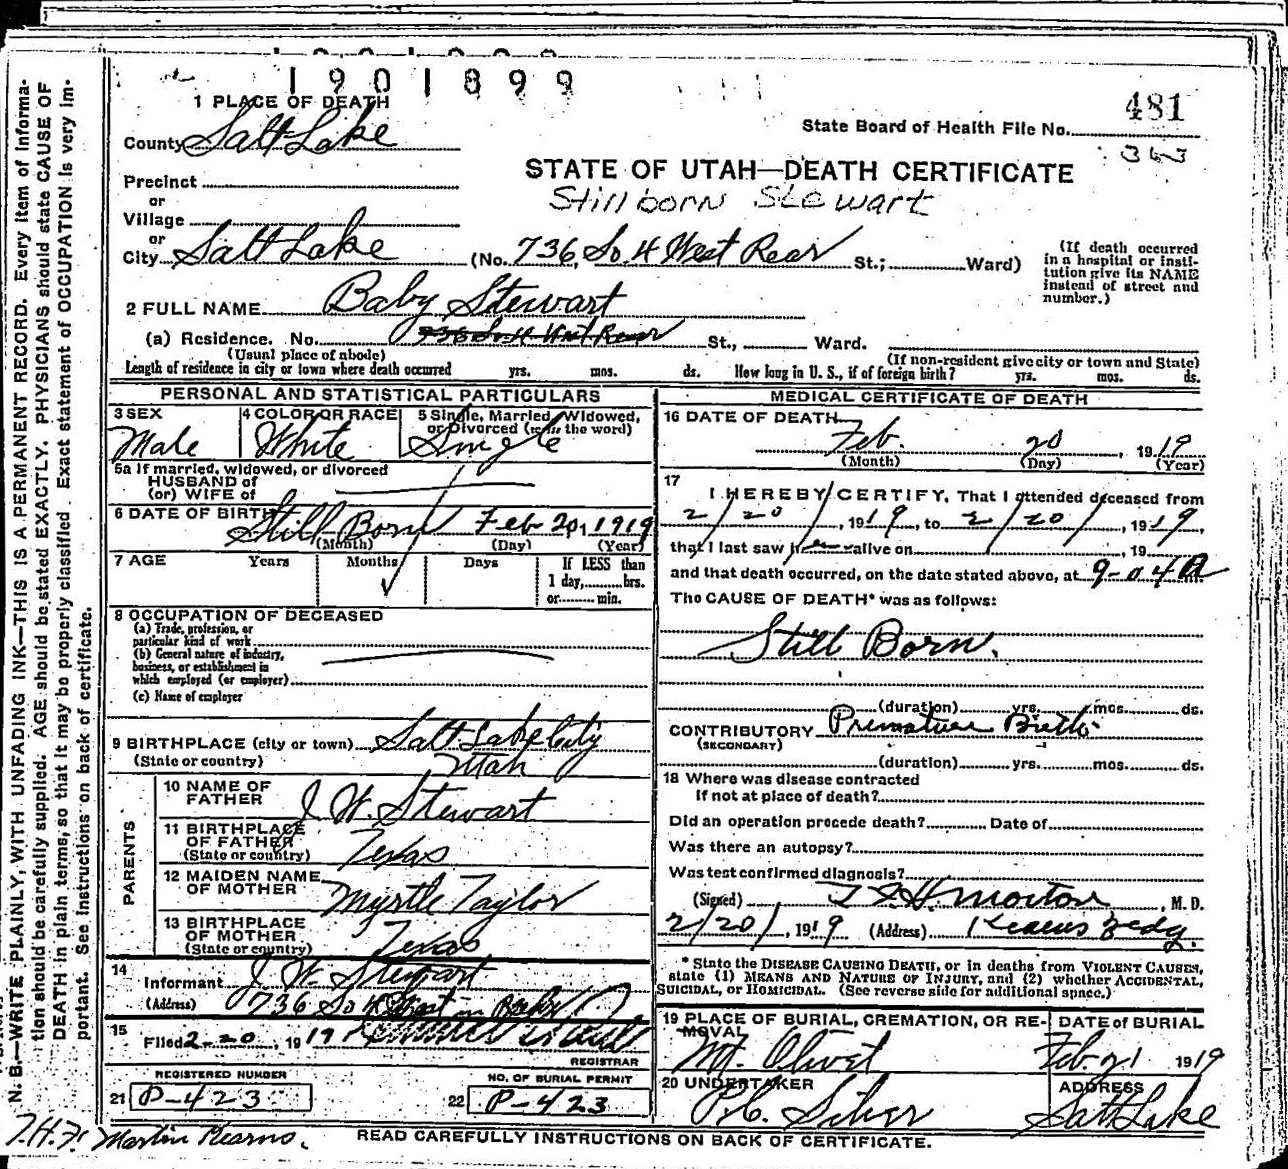 1901899
1 PLACE OF DEATH
481
County Salt Lake
State Board of Health File No.
STATE OF UTAH—DEATH CERTIFICATE
Precinct
or
Stillborn Stewart
Village
or
City Salt Lake (No. 736, So. 4 West Rear St.; Ward)
(If death occurred in a hospital or insti-
tution give its NAME
instead of street and
number.)
2 FULL NAME Baby Stewart
(a) Residence. No. 736 So. 4 West Rear St., Ward.
(Usual place of abode) (If non-resident give city or town and State)
Length of residence in city or town where death occurred yrs. mos. ds. How long in U. S., if of foreign birth? yrs. mos. ds.
PERSONAL AND STATISTICAL PARTICULARS
3 SEX 4 COLOR OR RACE 5 Single, Married, Widowed,
or Divorced (write the word)
Male White Single
5a If married, widowed, or divorced
HUSBAND of
(or) WIFE of
6 DATE OF BIRTH Still Born Feb 20, 1919
(Month) (Day) (Year)
7 AGE Years Months Days If LESS than
1 day, hrs.
or min.
8 OCCUPATION OF DECEASED
(a) Trade, profession, or
particular kind of work
(b) General nature of industry,
business, or establishment in
which employed (or employer)
(c) Name of employer
9 BIRTHPLACE (city or town) Salt Lake City
(State or country) Utah
PARENTS
10 NAME OF
FATHER J. W. Stewart
11 BIRTHPLACE
OF FATHER
(State or country) Texas
12 MAIDEN NAME
OF MOTHER Myrtle Taylor
13 BIRTHPLACE
OF MOTHER
(State or country) Texas
14
Informant J. W. Stewart
(Address) 736 So 4 West
15
Filed 2-20, 1919
REGISTRAR
REGISTERED NUMBER NO. OF BURIAL PERMIT
21 P-423 22 P-423
MEDICAL CERTIFICATE OF DEATH
16 DATE OF DEATH
Feb. 20, 1919
(Month) (Day) (Year)
17
I HEREBY CERTIFY, That I attended deceased from
2/20/, 1919, to 2/20/, 1919,
that I last saw h alive on, 19
and that death occurred, on the date stated above, at 9-04 A
The CAUSE OF DEATH* was as follows:
Still Born.
(duration) yrs. mos. ds.
CONTRIBUTORY Premature Birth
(SECONDARY)
(duration) yrs. mos. ds.
18 Where was disease contracted
If not at place of death?
Did an operation precede death? Date of
Was there an autopsy?
Was test confirmed diagnosis?
(Signed) Morton, M. D.
2/20/, 1919 (Address) Kearns Bldg.
* State the DISEASE CAUSING DEATH, or in deaths from VIOLENT CAUSES,
state (1) MEANS AND NATURE OF INJURY, and (2) whether ACCIDENTAL,
SUICIDAL, or HOMICIDAL. (See reverse side for additional space.)
19 PLACE OF BURIAL, CREMATION, OR RE-
MOVAL
DATE of BURIAL
Mt. Olivet Feb. 21 1919
20 UNDERTAKER ADDRESS
Salt Lake
READ CAREFULLY INSTRUCTIONS ON BACK OF CERTIFICATE.
Martin Kearns.
N. B.—WRITE PLAINLY, WITH UNFADING INK—THIS IS A PERMANENT RECORD. Every item of informa-
tion should be carefully supplied. AGE should be stated EXACTLY. PHYSICIANS should state CAUSE OF
DEATH in plain terms, so that it may be properly classified. Exact statement of OCCUPATION is very im-
portant. See instructions on back of certificate.